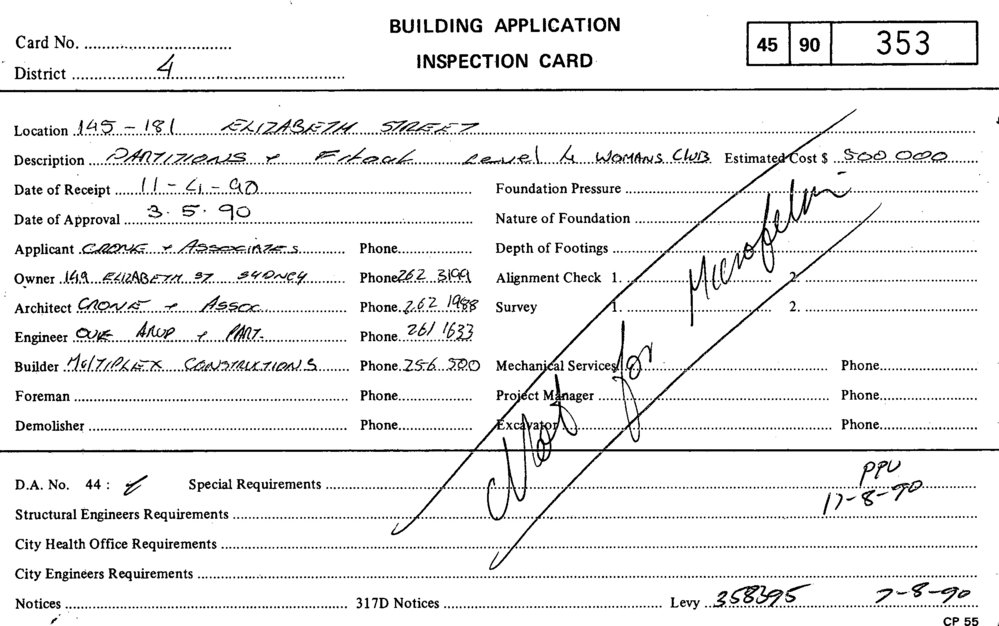 BUILDING APPLICATION
INSPECTION CARD
Card No.
District 4
45 90 353
Location 145 - 181 ELIZABETH STREET
Description PARTITIONS + Fitout Level 4 WOMANS CLUB Estimated Cost $ 500 000
Date of Receipt 11 - 4 - 90 Foundation Pressure
Date of Approval 3. 5. 90 Nature of Foundation
Applicant CRONE + ASSOCIATES Phone Depth of Footings
Owner 149 ELIZABETH ST SYDNEY Phone 262 3199 Alignment Check 1. 2.
Architect CRONE + ASSOC. Phone 262 1988 Survey 1. 2.
Engineer OVE ARUP + PART. Phone 261 1633
Builder MULTIPLEX CONSTRUCTIONS Phone 256 500 Mechanical Services Phone
Foreman Phone Project Manager Phone
Demolisher Phone Excavator Phone
Not for Microfelm
D.A. No. 44 : Special Requirements PPU
Structural Engineers Requirements 17-8-90
City Health Office Requirements
City Engineers Requirements
Notices 317D Notices Levy 358395 7-8-90
CP 55